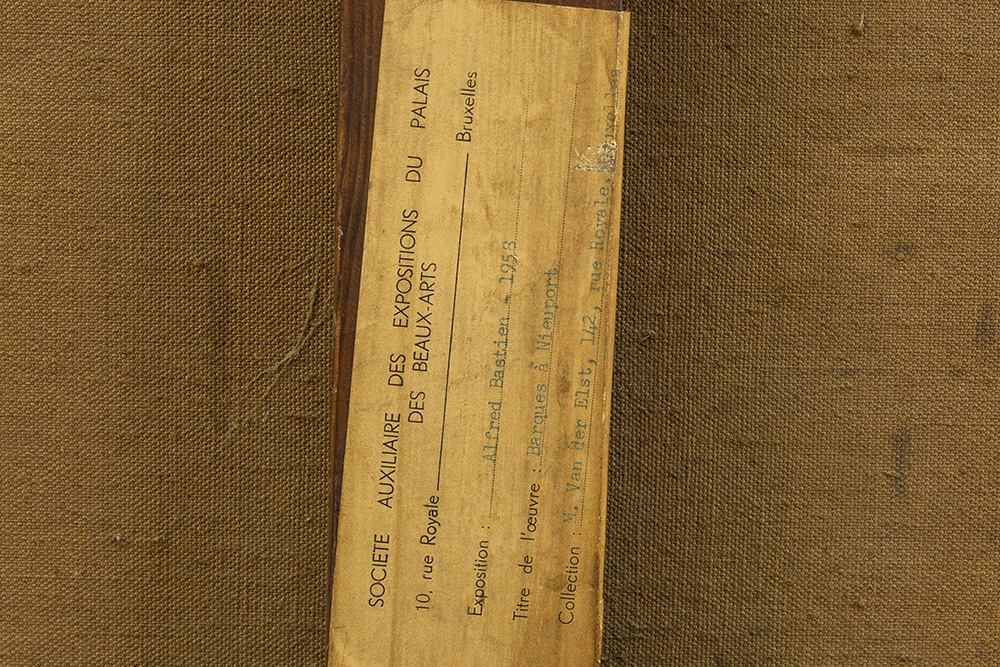 SOCIETE AUXILIAIRE DES EXPOSITIONS DU PALAIS
DES BEAUX-ARTS
10, rue Royale Bruxelles
Exposition : Alfred Bastien - 1958
Titre de l'œuvre : Barques à Nieuport
Collection : M. Van der Elst, 142, rue Royale, Bruxelles